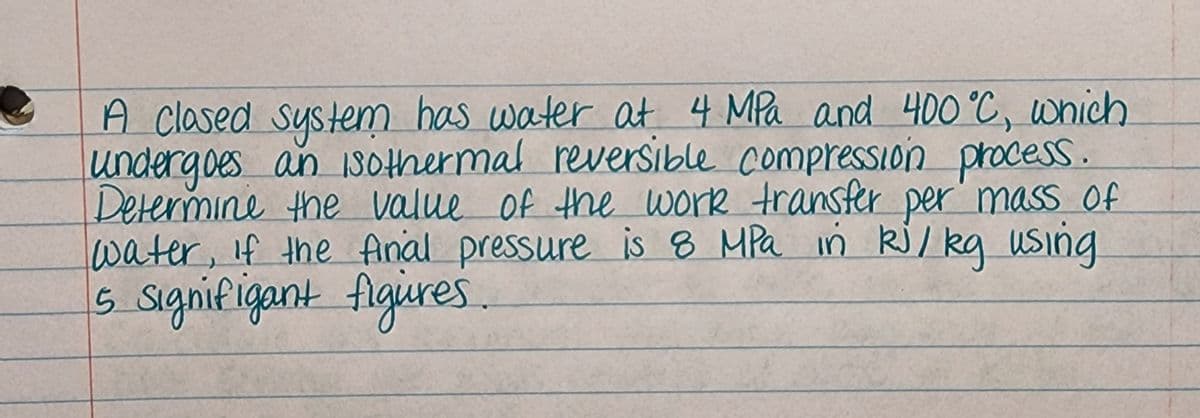 A closed system has water at 4 MPa and 400 °C, which
undergoes an isothermal reversible compression process.
Determine the value of the work transfer per mass of
water, if the final pressure is 8 MPa in kJ/kg using
5 signifigant figures.